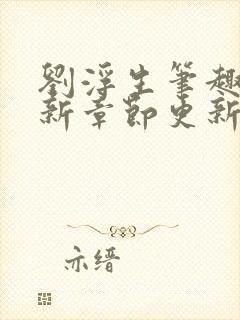 劉浮生筆趣
新章節更新
亦缙